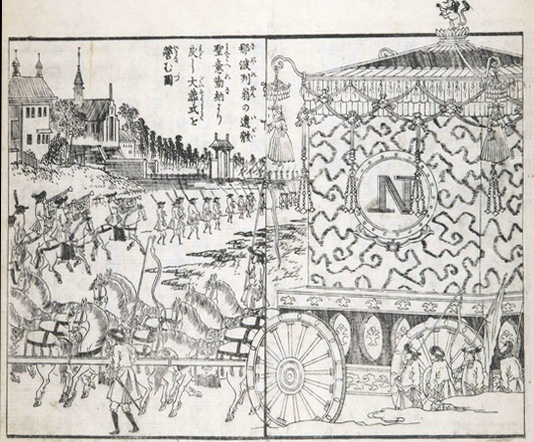 那波列翁の遺骸
聖意勒納より
戻し大葬式を
營む圖
N